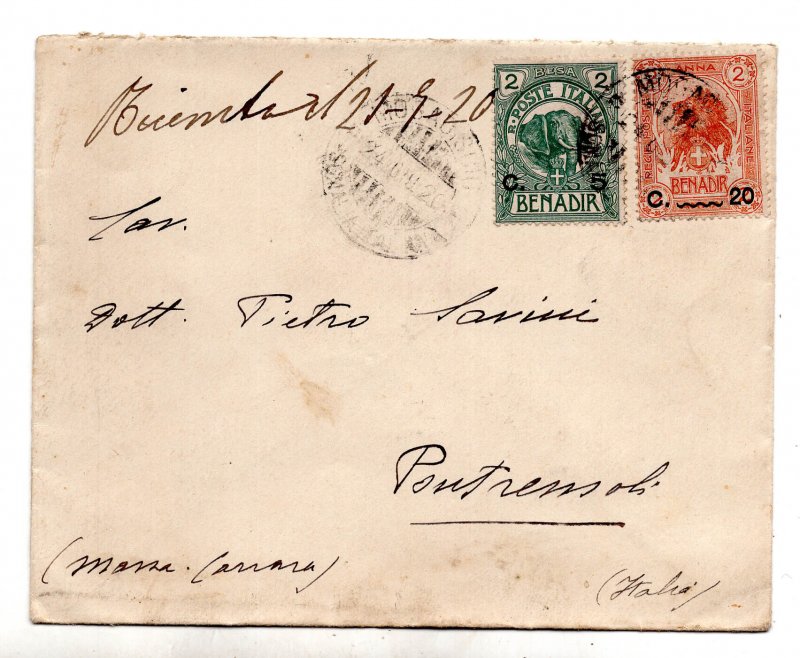 21 - 9 - 20
2 BESA 2
R. POSTE ITALIANE
C. 5
BENADIR
ANNA 2
REGIE POSTE ITALIANE
BENADIR
C. 20
Cav.
Dott. Pietro Savini
Pontremoli
(Massa-Carrara)
(Italia)